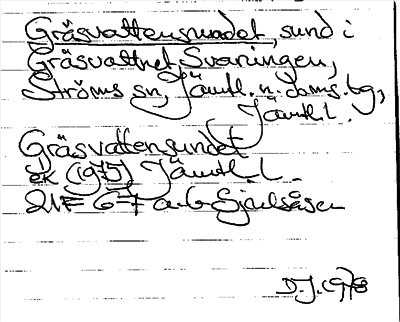 Gräsvattensundet, sund i
Gräsvattnet Svaningen,
Ströms sn, Jämtl. n. doms.bg,
Jämtl.l.
Gräsvattensundet
ek (1975) Jämtl. l.
21F 6-7 a-b Sjoulsåsen
D.J. 1978